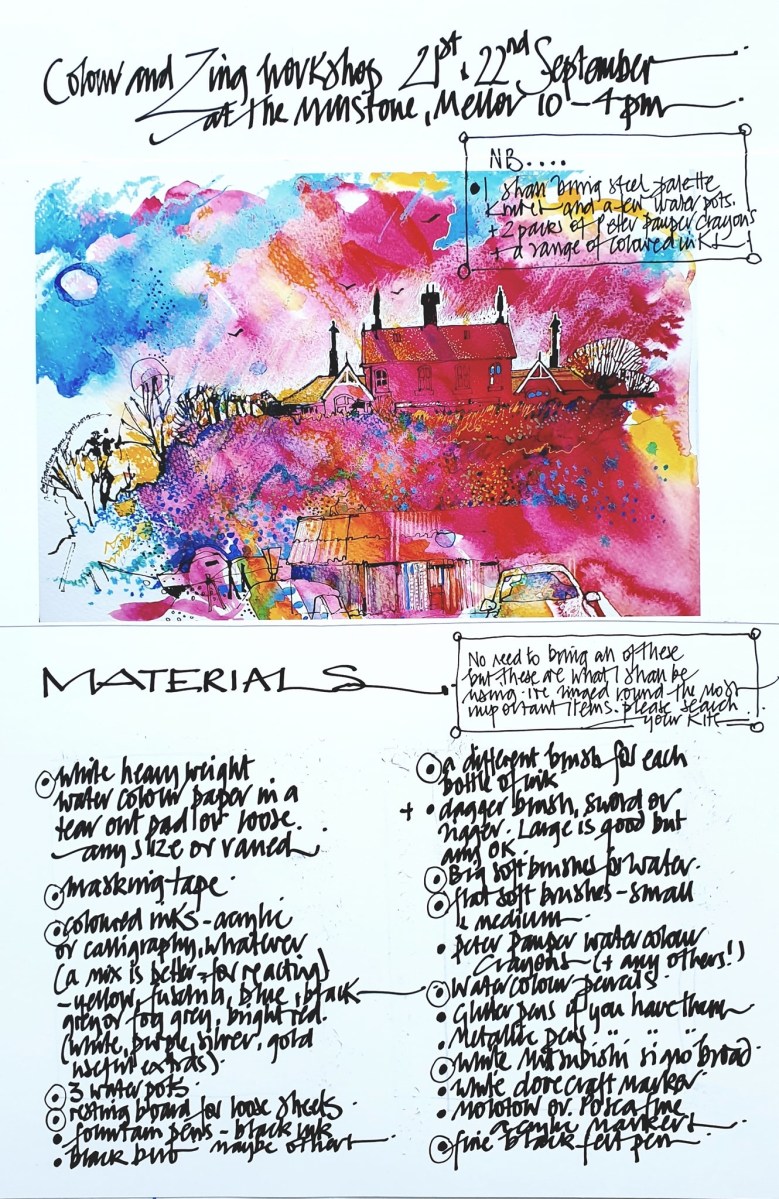 Colour and Zing workshop 21st & 22nd September
at the Millstone, Mellor 10 - 4 pm
NB....
• I shall bring steel palette
knives and a few water pots.
+ 2 packs of Peter Pauper crayons
+ a range of coloured inks
MATERIALS
No need to bring all of these
but these are what I shall be
using. I've ringed round the most
important items. Please search
your kits
• white heavy weight
water colour paper in a
tear out pad or loose.
any size or varied
• masking tape.
• coloured inks - acrylic
or calligraphy, whatever
(a mix is better - for reacting)
- yellow, fuschia, blue, black
grey or fog grey, bright red.
(white, purple, silver, gold
useful extras)
• 3 water pots.
• resting board for loose sheets.
• fountain pens - black ink
• black biro maybe others
• a different brush for each
bottle of ink
+ • dagger brush, sword or
rigger. Large is good but
any OK.
• Big soft brushes for water.
• flat soft brushes - small
& medium
• Peter Pauper watercolour
crayons (+ any others!)
• watercolour pencils.
• Glitter pens if you have them
• Metallic pens " " "
• White Mitsubishi signo broad.
• White dovecraft marker.
• Molotow or Posca fine
acrylic markers
• fine black felt pen